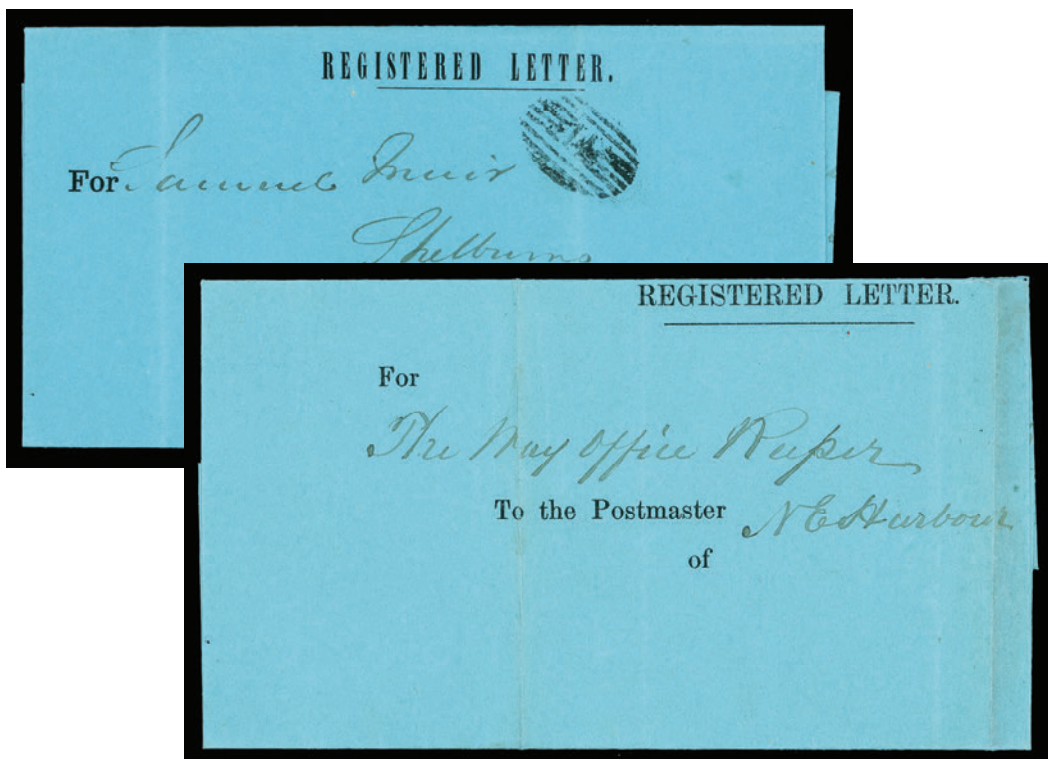 REGISTERED LETTER.
For Samuel Muir
Shelburne
REGISTERED LETTER.
For
The Way Office Keeper
To the Postmaster N E Harbour
of